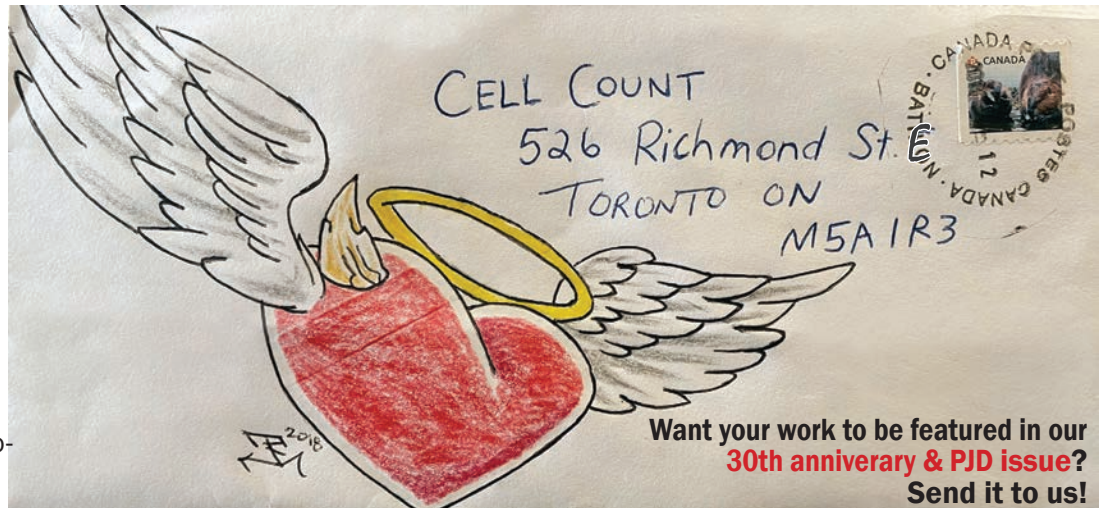 CELL COUNT
526 Richmond St. E
TORONTO ON
M5A 1R3
CANADA
CANADA P
POSTES CANADA
BAT
N
12
2018
Want your work to be featured in our
30th anniverary & PJD issue?
Send it to us!